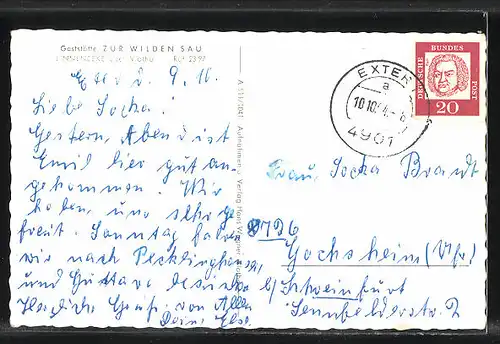 Gaststätte ZUR WILDEN SAU
Exter d. 9. 10.
Liebe Socha!
Gestern Abend ist
Emil hier gut an-
gekommen. Wir
haben uns sehr ge-
freut. Sonntag fahren
wir nach Pecklinghausen
und Gustave
Herzliche Grüße von Allen
Deine Else
Verlag Hans
EXTER
a
10.10.
4901
DEUTSCHE BUNDESPOST
20
Frau, Socha Brandt
8726
Gochsheim (Ufr)
b/ Schweinfurt
Sennfelderstr. 2